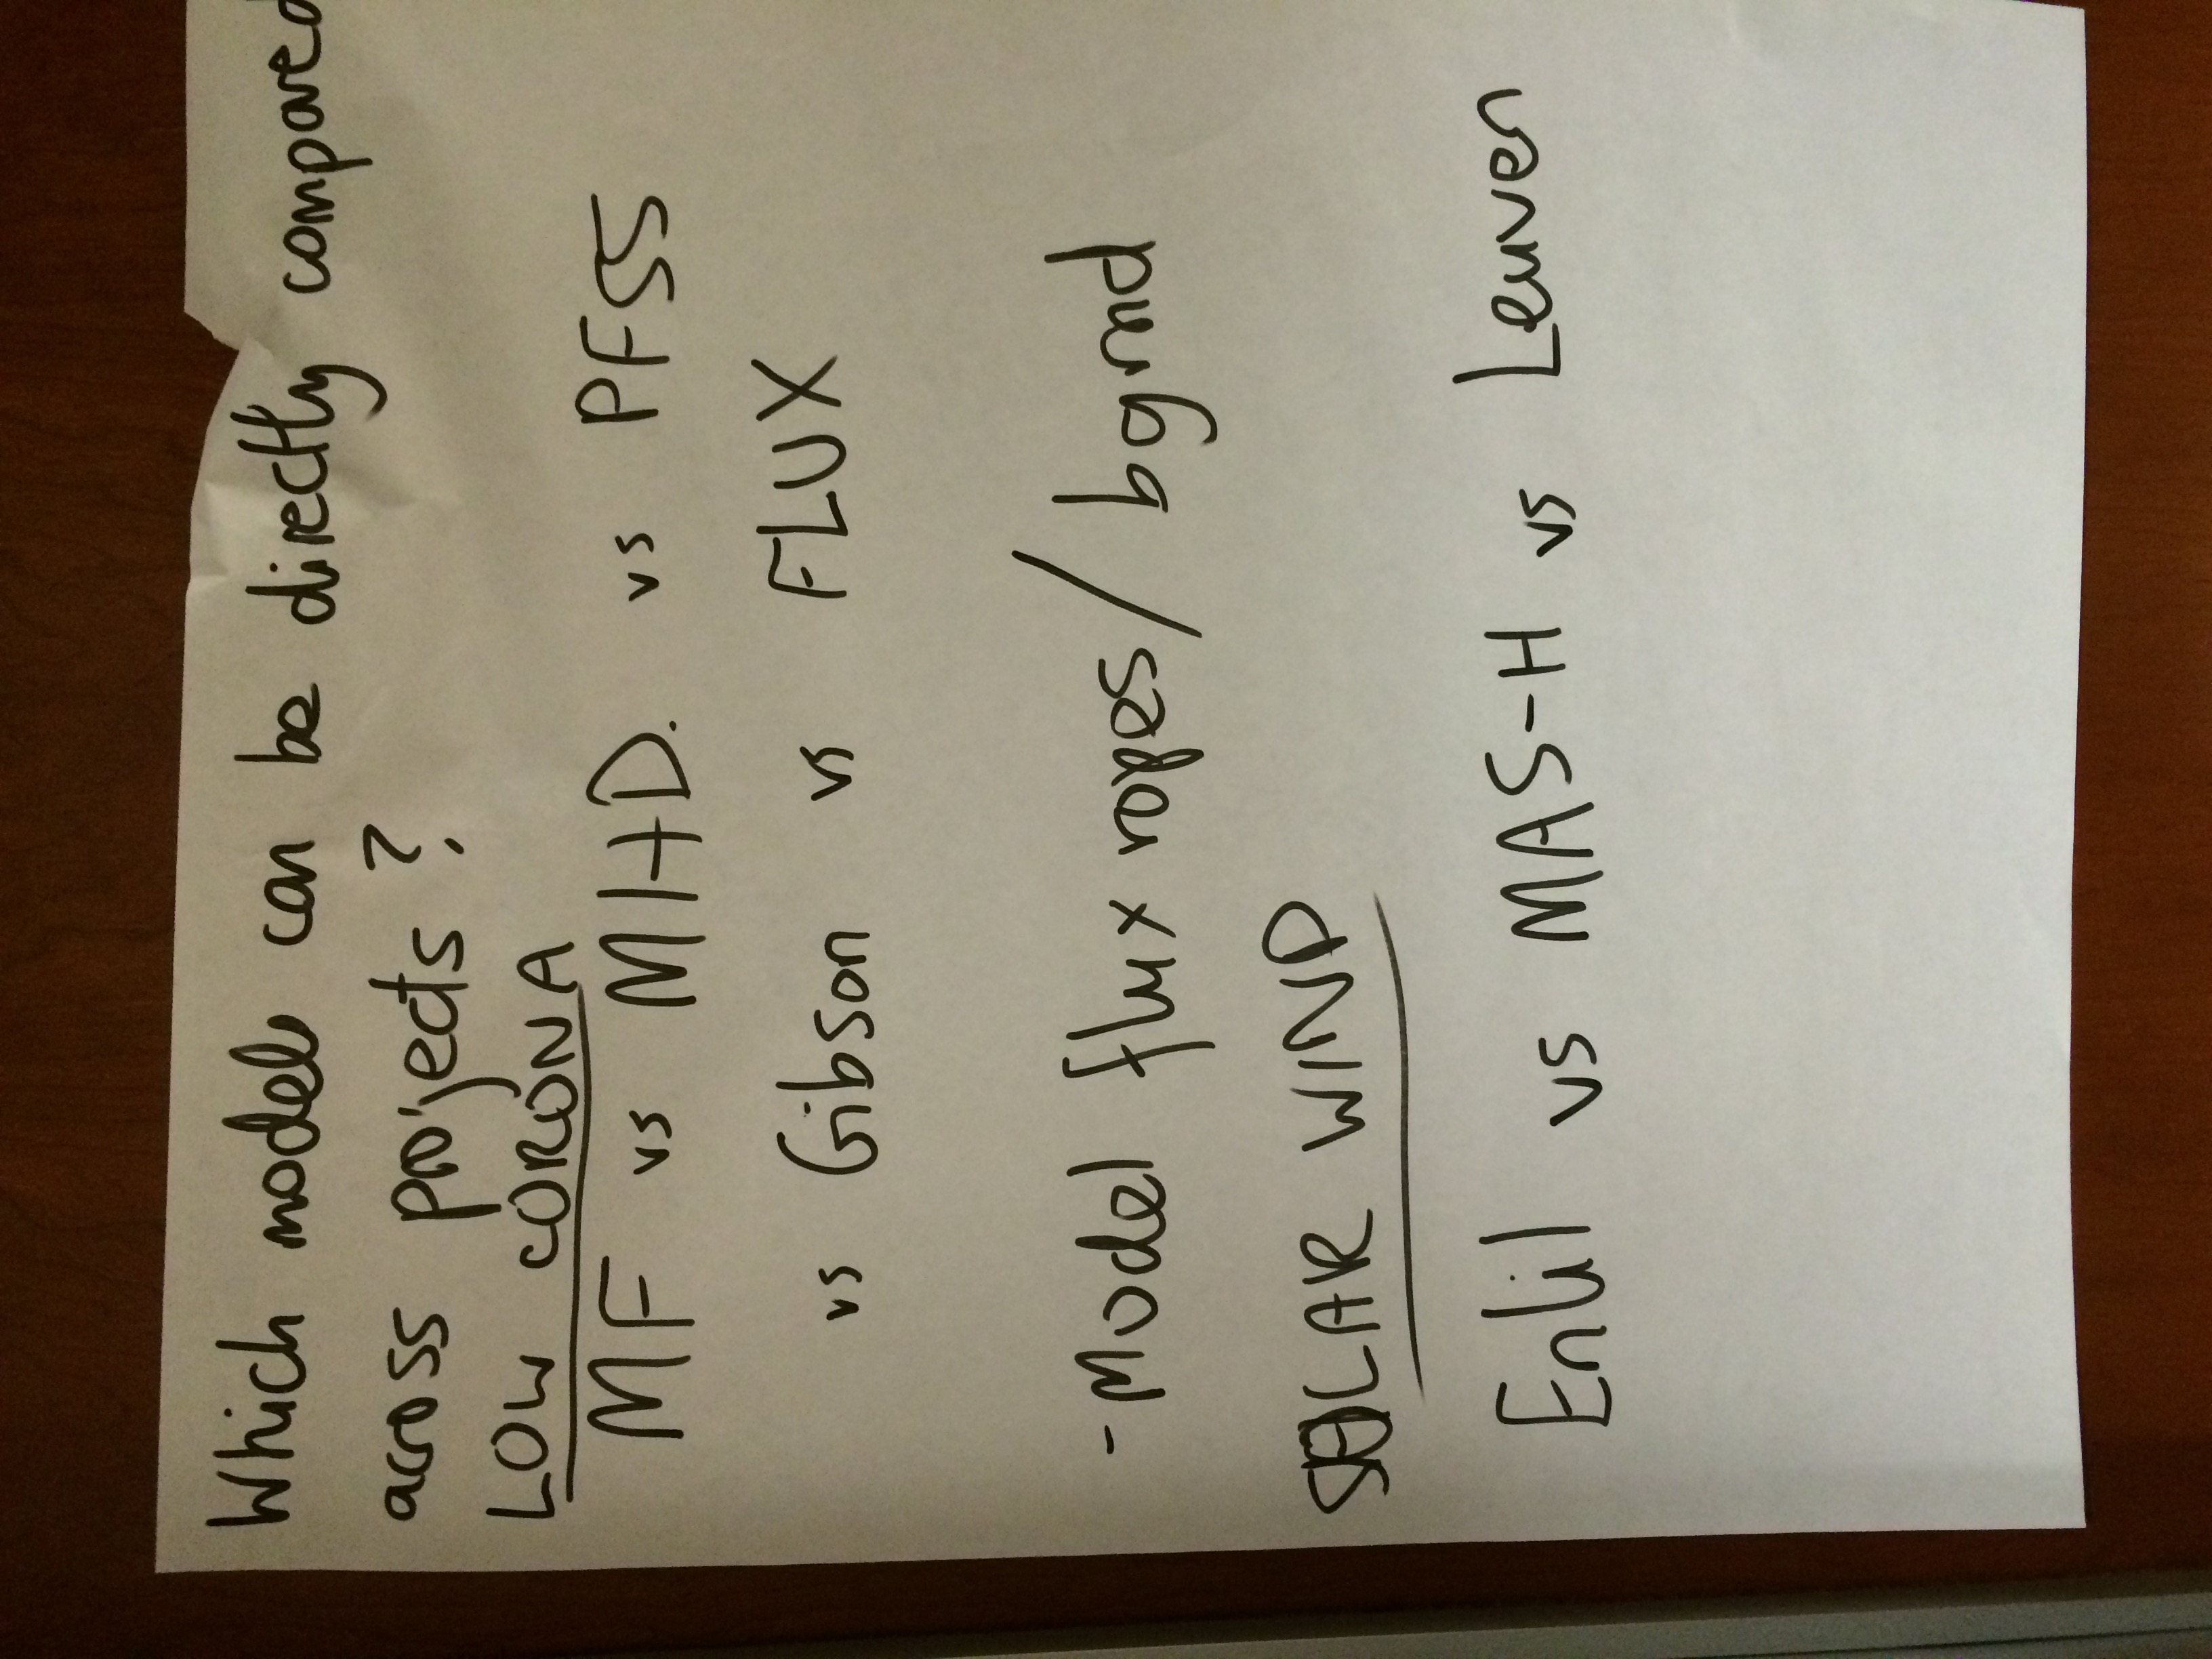 Which models can be directly compared
across projects?
LOW CORONA
MF vs MHD. vs PFSS
vs Gibson vs FLUX
- Model flux ropes / bgrnd
SOLAR WIND
Enlil vs MAS-H vs